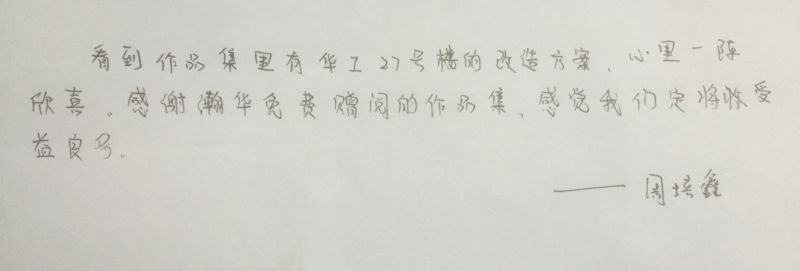 看到作品集里有华工27号楼的改造方案，心里一阵
欣喜。感谢瀚华免费赠阅的作品集，感觉我们定将收受
益良多。
——周培鑫